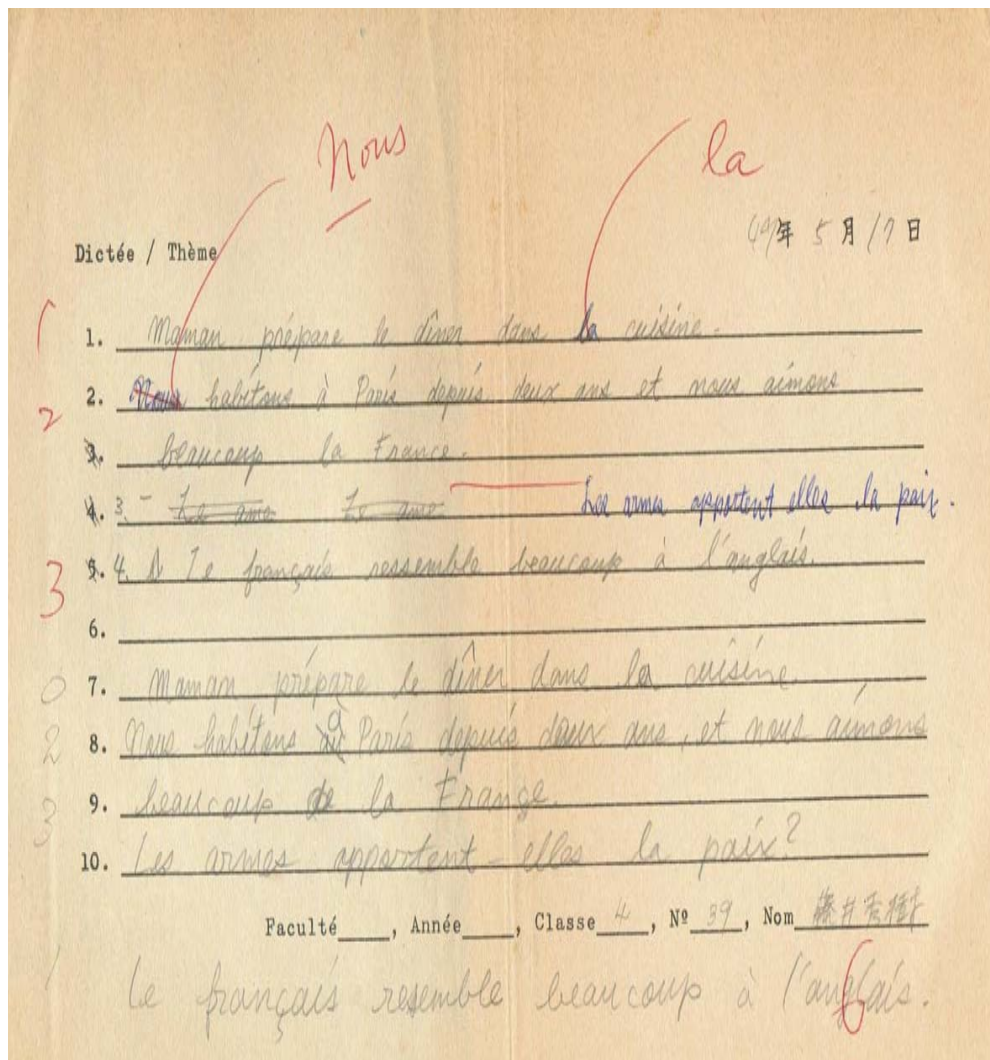 Nous
la
Dictée / Thème
49年 5月17日
1. Maman prépare le dîner dans la cuisine.
2. Nous habitons à Paris depuis deux ans et nous aimons
3. beaucoup la France.
4. 3. Le ame Le ame Les armes apportent elles la paix.
5. 4. Le français ressemble beaucoup à l'anglais.
3
6.
0 7. Maman prépare le dîner dans la cuisine.
2 8. Nous habitons à Paris depuis deux ans, et nous aimons
3 9. beaucoup la France.
10. Les armes apportent-elles la paix?
Faculté____, Année____, Classe 4, Nº 39, Nom 藤井秀樹
Le français resemble beaucoup à l'anglais.
6